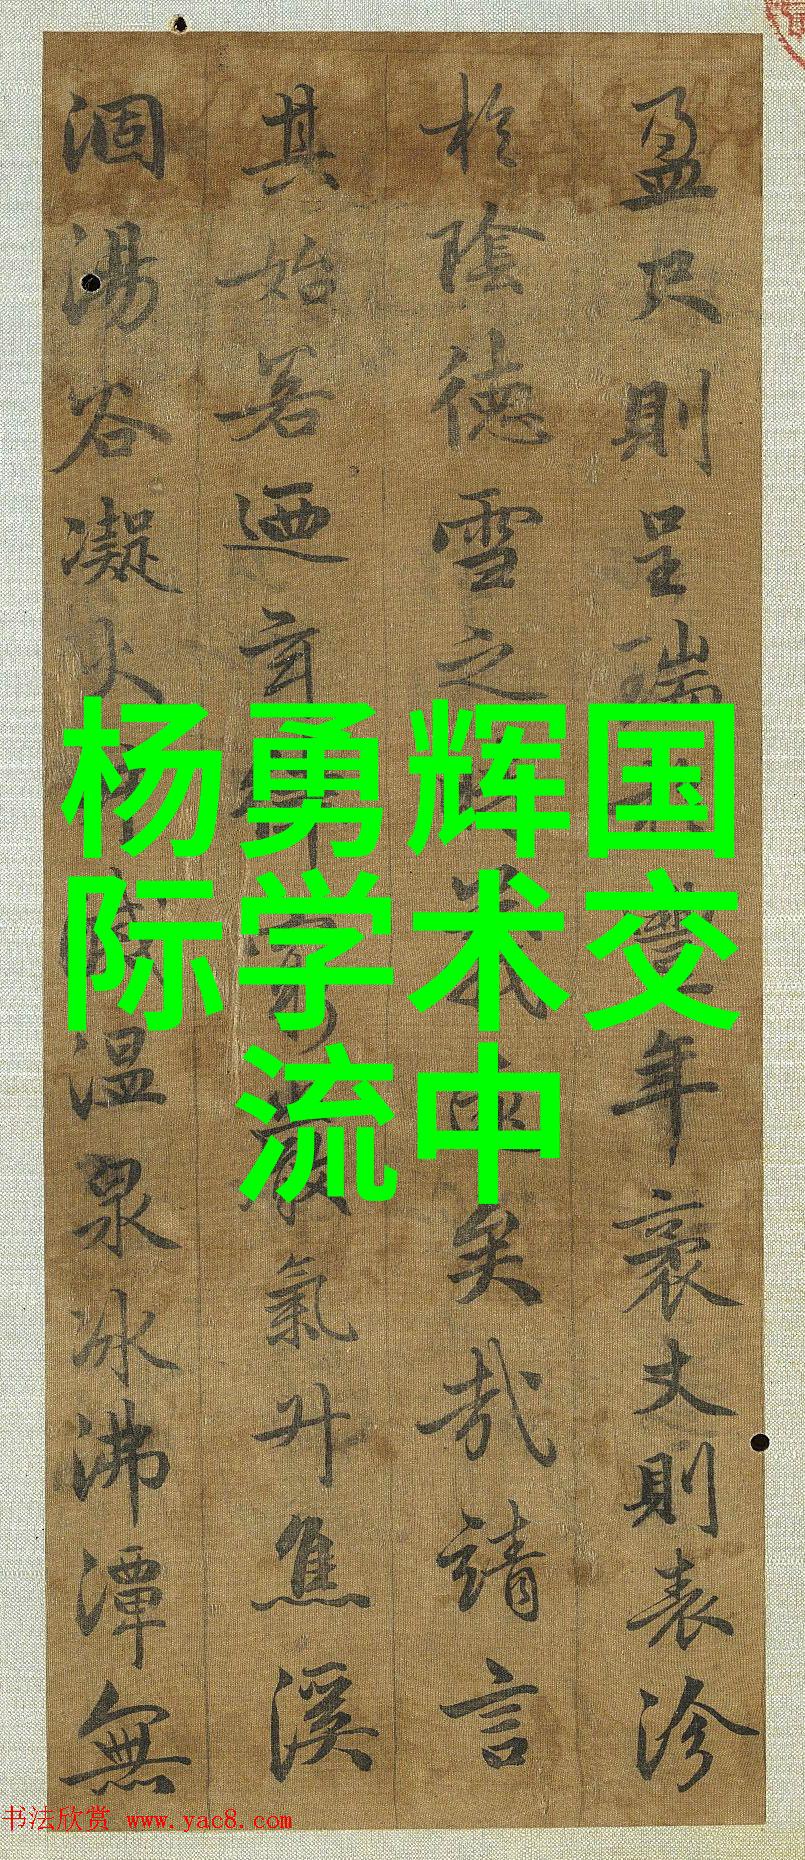 盈尺則呈瑞豐年袤丈則表沴
於陰德雪之義矣哉請言
其始若迺玄律窮嚴氣升焦溪
涸湯谷凝火滅溫泉冰沸潭無
杨勇辉国
际学术交
流中
书法欣赏 www.yac8.com